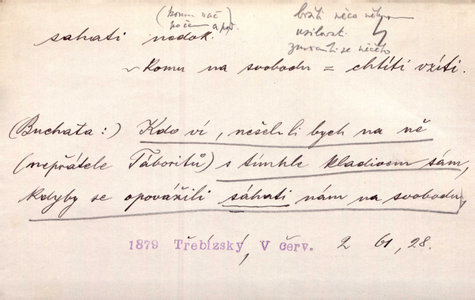 sahati nedok.
(komu nač
po čem a pod.
bráti něco
usilovati
zmocniti se něčeho
~ komu na svobodu = chtíti vzíti.
(Buchata:) Kdo ví, nešel-li bych na ně
(nepřátele Táboritů) s tímhle kladivem sám,
kdyby se opovážili sáhati nám na svobodu,
1879 Třebízský, V červ. 2 61, 28.